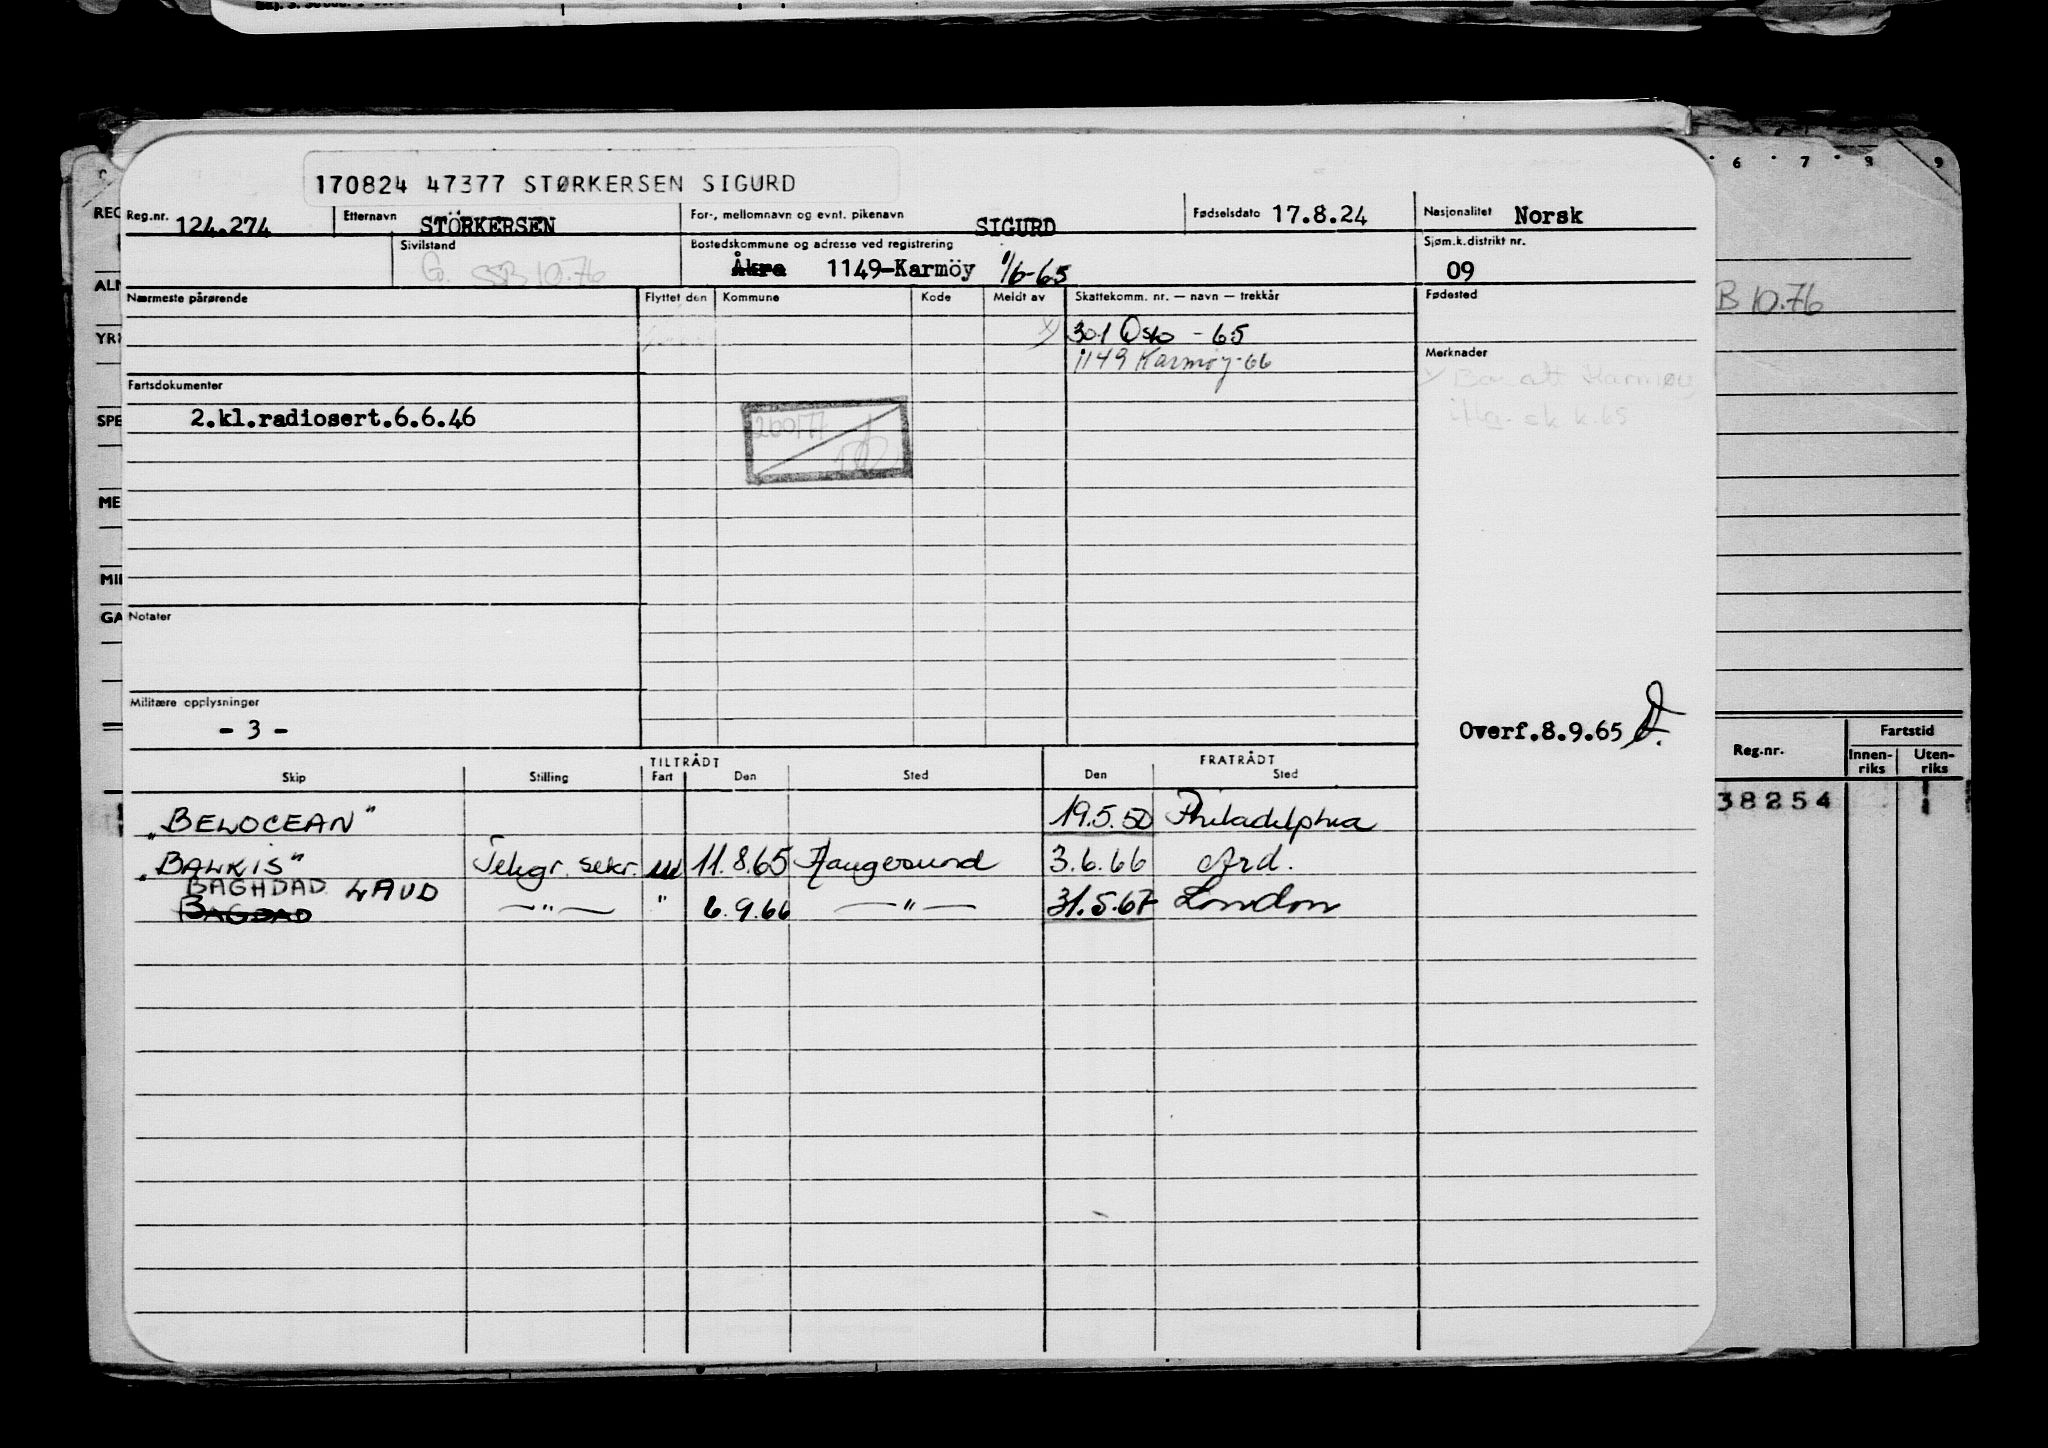 170824 47377 STØRKERSEN SIGURD
Reg.nr. 124.274 Etternavn STÖRKERSEN For-, mellomnavn og evnt. pikenavn SIGURD Fødselsdato 17.8.24 Nasjonalitet Norsk
Sivilstand G. SSB 10.76 Bostedskommune og adresse ved registrering Åkra 1149-Karmöy 1/6-65 Sjøm.k.distrikt nr. 09
Nærmeste pårørende Flyttet den Kommune Kode Meldt av Skattekomm. nr. — navn — trekkår Fødested
x) 301 Oslo - 65
1149 Karmøy-66
Merknader
Fartsdokumenter
2.kl.radiosert.6.6.46
Notater
Militære opplysninger
- 3 -
Overf.8.9.65
TILTRÅDT FRATRÅDT
Skip Stilling Fart Den Sted Den Sted
"BELOCEAN" 19.5.50 Philadelphia
"BALKIS" Telegr. sekr. 11.8.65 Haugesund 3.6.66 Ard.
BAGHDAD LAUD
BAGDAD —"— " 6.9.66 —"— 31.5.67 London
6 7 8 9
REG
ALM
YR
SPE
ME
MIL
GA
B 10.76
Reg.nr. Fartstid
Innen-riks Uten-riks
38254 1